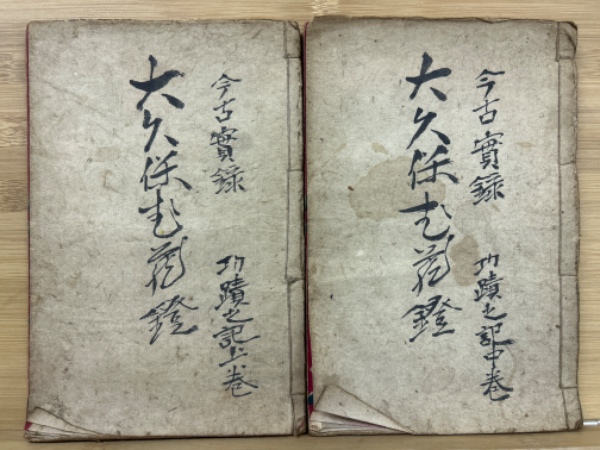 今古實録
功蹟之記上巻
大久保武蔵鐙
今古實録
功蹟之記中巻
大久保武蔵鐙